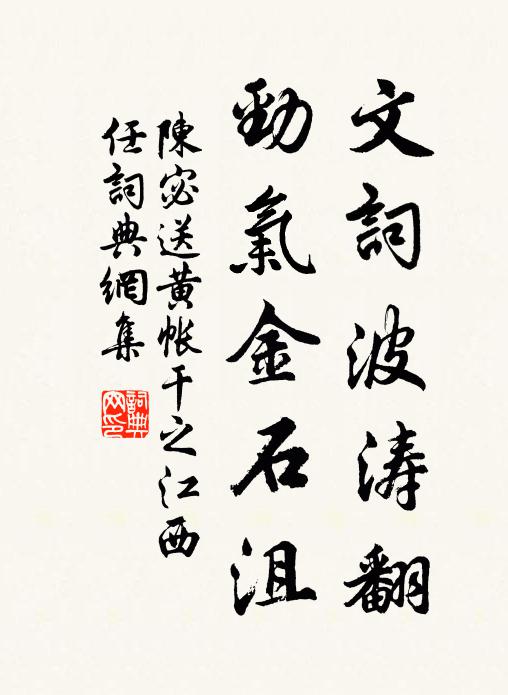 文詞波涛翻
勁氣金石沮
陳宓送黄帐干之江西
任詞典網集
詞典网印